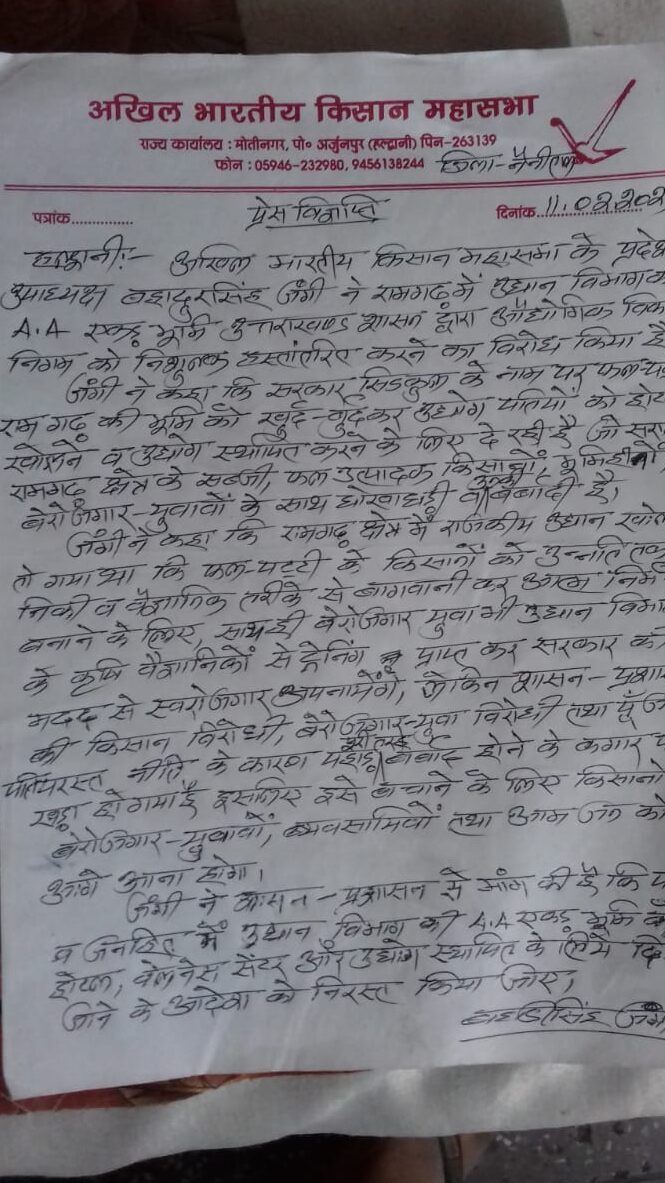 अखिल भारतीय किसान महासभा
राज्य कार्यालय : मोतीनगर, पो० अर्जुनपुर (हल्द्वानी) पिन-263139
फोन : 05946-232980, 9456138244 जिला-नैनीताल
पत्रांक.............. प्रेस विज्ञप्ति दिनांक...11.02.202
हल्द्वानी:- अखिल भारतीय किसान महासभा के प्रदे
उपाध्यक्ष बहादुर सिंह जंगी ने रामगढ़ में उद्यान विभाग क
A.A एकड़ भूमि उत्तराखण्ड शासन द्वारा औद्योगिक विक
निगम को निशुल्क हस्तांतरित करने का विरोध किया है
जंगी ने कहा कि सरकार सिडकुल के नाम पर फल-प
रामगढ़ की भूमि को खुर्द-बुर्द कर उद्योग पतियों को होट
खोलने व उद्योग स्थापित करने के लिए दे रही है जो सरा
रामगढ़ क्षेत्र के सब्जी, फल उत्पादक किसानों, भूमिहीनों
बेरोजगार-युवावों के साथ धोखाधड़ी व उनकी बर्बादी है,
जंगी ने कहा कि रामगढ़ क्षेत्र में राजकीय उद्यान खोल
तो गया था कि फल-पट्टी के किसानों को उन्नति तक
निकी व वैज्ञानिक तरीके से बागवानी कर आत्म निर्भ
बनाने के लिए, साथ ही बेरोजगार युवा भी उद्यान विभाग
के कृषि वैज्ञानिकों से ट्रेनिंग प्राप्त कर सरकार की
मदद से स्वरोजगार अपनायेंगे, लेकिन शासन-प्रशास
की किसान विरोधी, बेरोजगार-युवा विरोधी तथा पूँज
पतिपरस्त नीति के कारण पहाड़ पूरी तरह बर्बाद होने के कगार प
खड़ा हो गया है इसलिए इसे बचाने के लिए किसानो
बेरोजगार-युवावों, व्यवसायियों तथा आम जन को
आगे आना होगा।
जंगी ने शासन-प्रशासन से मांग की है कि
व जनहित में उद्यान विभाग की A.A एकड़ भूमि क
होटल, वेलनेस सेंटर और उद्योग स्थापित के लिये दि
जाने के आदेश को निरस्त किया जाए,
बहादुर सिंह जंगी